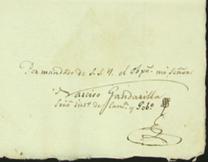 Por mandado de S. S. Y. el Obpo. mi Señor
Narciso Gandarilla
Srio int.o de Cam.a y Gob.o